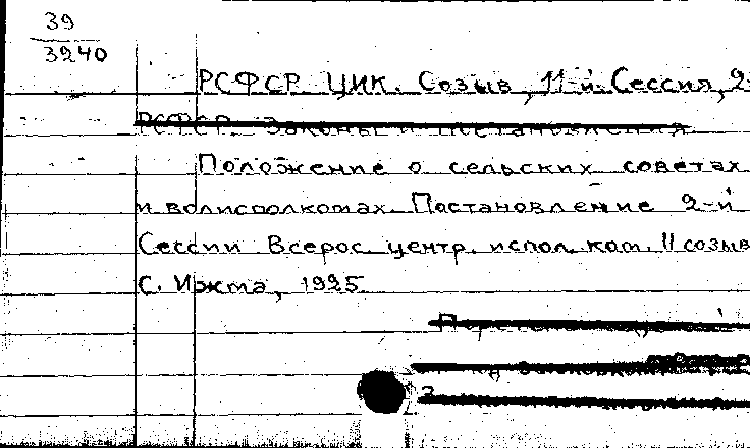 39
3240
РСФСР ЦИК. Созыв, 11-й. Сессия, 2-
РСФСР. Законы и постановления
Положение о сельских советах
и волисполкомах. Постановление 2-й
Сессии Всерос. центр. испол. ком. 11 созыв
С. Ижма, 1925.